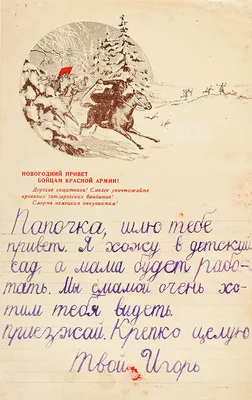 НОВОГОДНИЙ ПРИВЕТ
БОЙЦАМ КРАСНОЙ АРМИИ!
Дорогие защитники! Смелее уничтожайте
кровавых гитлеровских бандитов!
Смерть немецким оккупантам!
Папочка, шлю тебе
привет. Я хожу в детский
сад а мама будет рабо-
тать. Мы смамой очень хо-
тим тебя видеть.
приезжай. Крепко целую
Твой Игорь